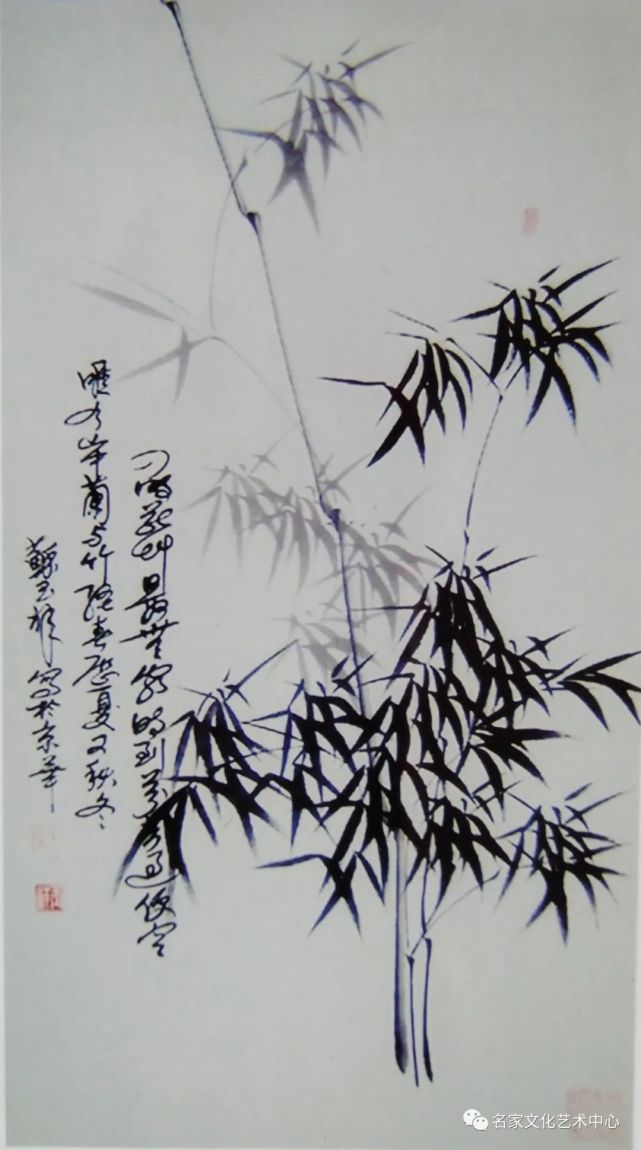 四時花草最無窮時到芬芳過便空
唯有山中蘭与竹經春歷夏又秋冬
蘇玉 寫於京華
名家文化艺术中心